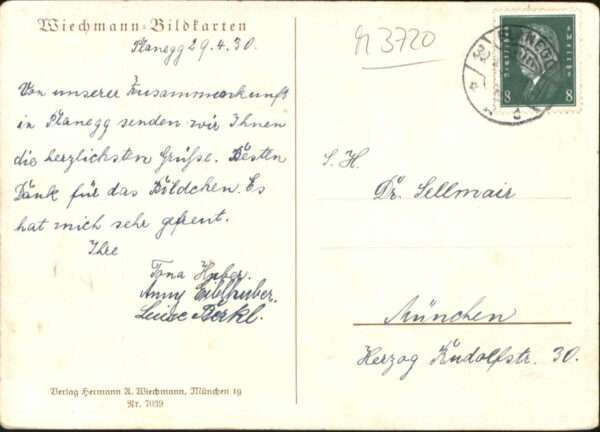 Wiechmann-Bildkarten
Planegg 29.4.30.
Von unserer Zusammenkunft
in Planegg senden wir Ihnen
die herzlichsten Grüße. Besten
Dank für das Bildchen. Es
hat mich sehr gefreut.
Ihre
Tona Huber.
Anny Eiblhuber.
Luise Berkl.
Verlag Hermann A. Wiechmann, München 19
Nr. 7039
n 3720
PLANEGG
Deutsches Reich
8 8
S. H.
Dr. Sellmair
München
Herzog Rudolfstr. 30.